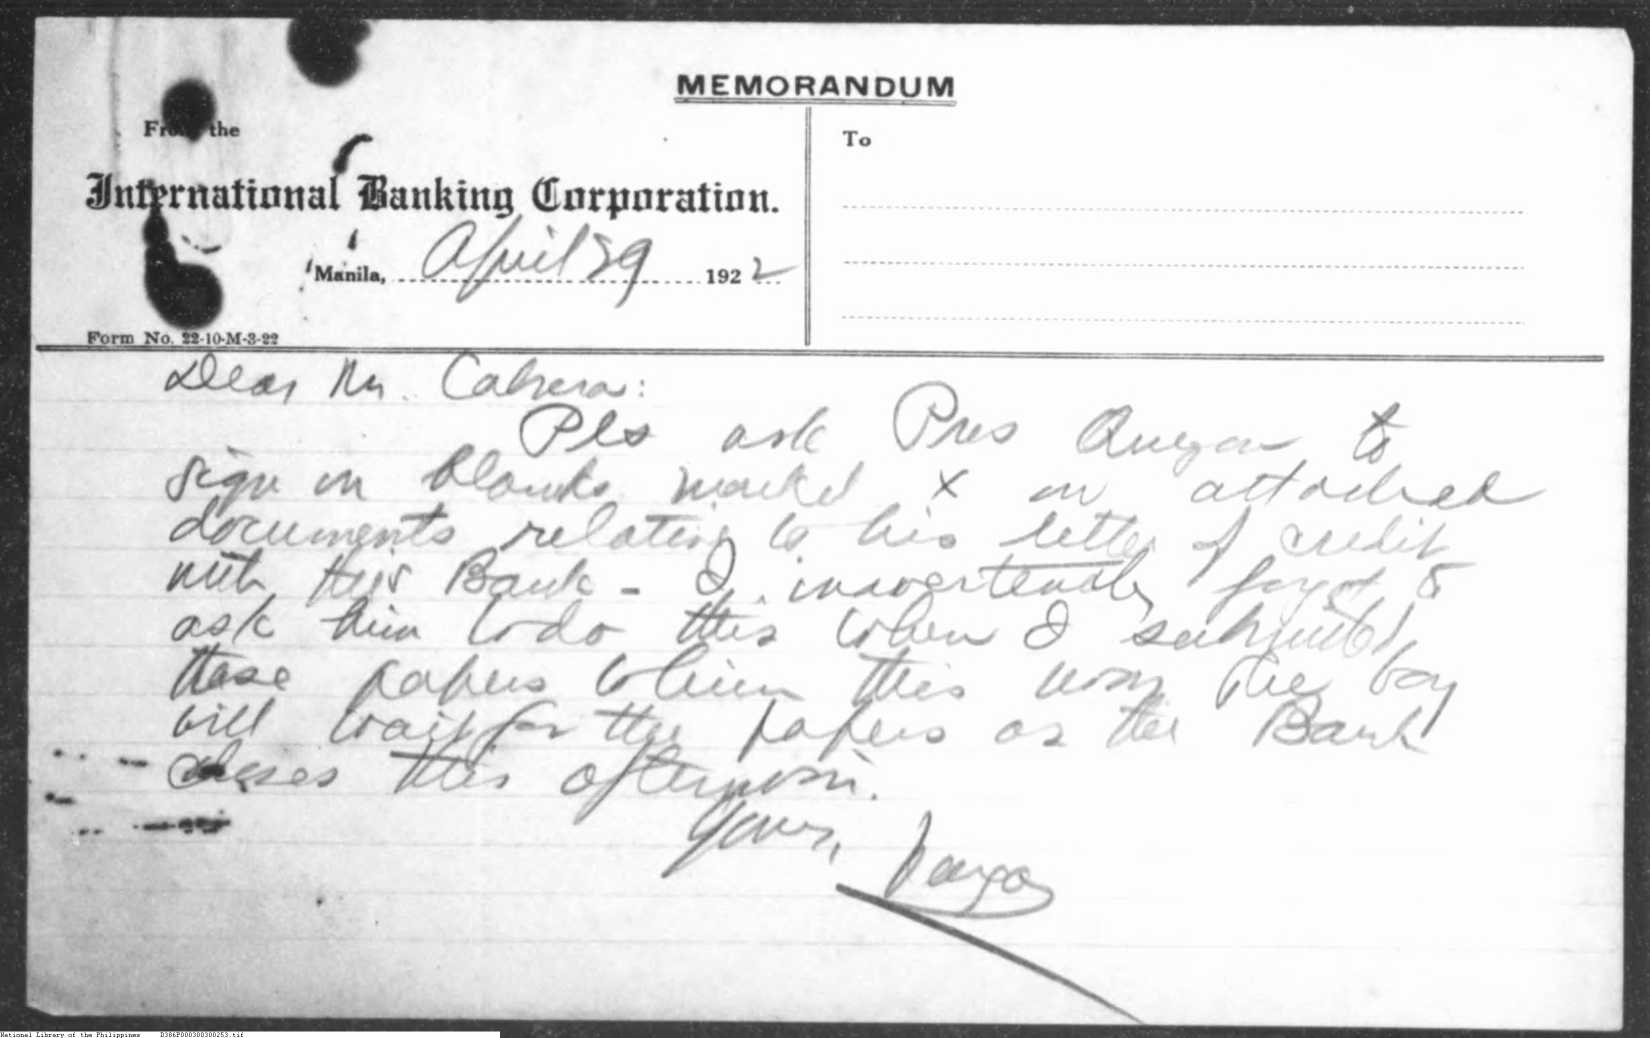 MEMORANDUM
From the
To
International Banking Corporation.
Manila, April 29 1922
Form No. 22-10-M-3-22
Dear Mr. Cabrera:
Pls ask Pres Quezon to
sign in blanks marked x on attached
documents relating to his letter of credit
with this Bank - I inavertently forgot to
ask him to do this when I submitted
these papers to him this morn The boy
will wait for the papers as the Bank
closes this afternoon.
Yours,
Vargas
National Library of the Philippines D386P000300300253.tif